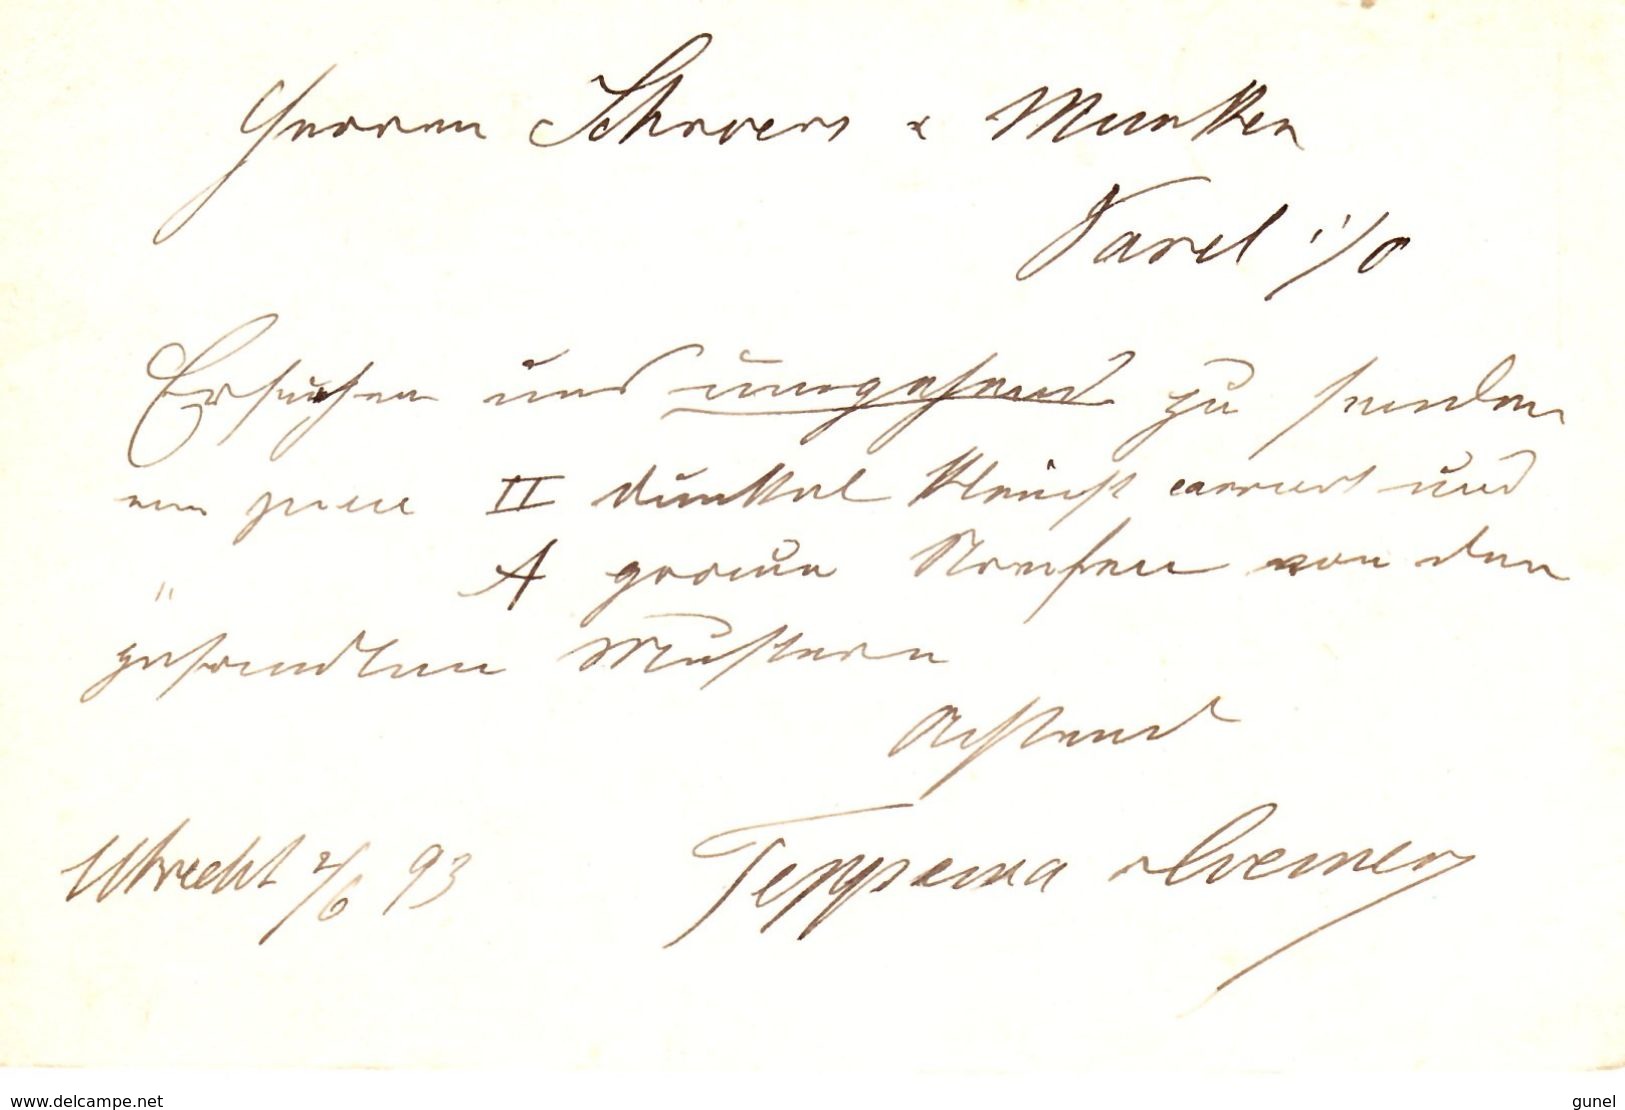 Herren Schroers & Munken
Varel i/O
Ersuchen uns umgehend zu senden
ein  II dunkel kleinst carriert und
" A graue Streifen von den
gesandten Mustern
Achtend
Utrecht 2/6 93 Teppema
www.delcampe.net
gunel